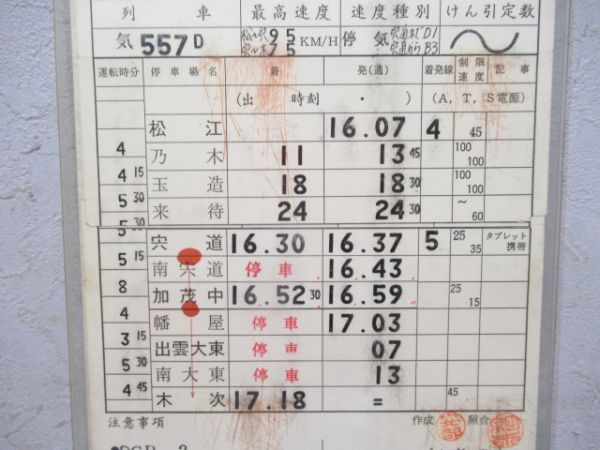 列 車 最高速度 速度種別 けん引定数
気 557D 95 75 KM/H 停 気 宍道まで D1 宍道から B3
運転時分 停車場名 着 発(通) 着発線 制限速度 記事
(出 時刻 ・ ) (A, T, S電源)
松江 16.07 4 45
4 乃木 11 13 45 100 100
4 15 玉造 18 18 30 100 100
5 30 来待 24 24 30 ~ 60
5 30 宍道 16.30 16.37 5 25 35 タブレット携帯
5 15 南宍道 停車 16.43
8 加茂中 16.52 30 16.59 25 15
4 幡屋 停車 17.03
3 15 出雲大東 停車 07
5 30 南大東 停車 13
4 45 木次 17.18 = 45
注意事項 作成 照合